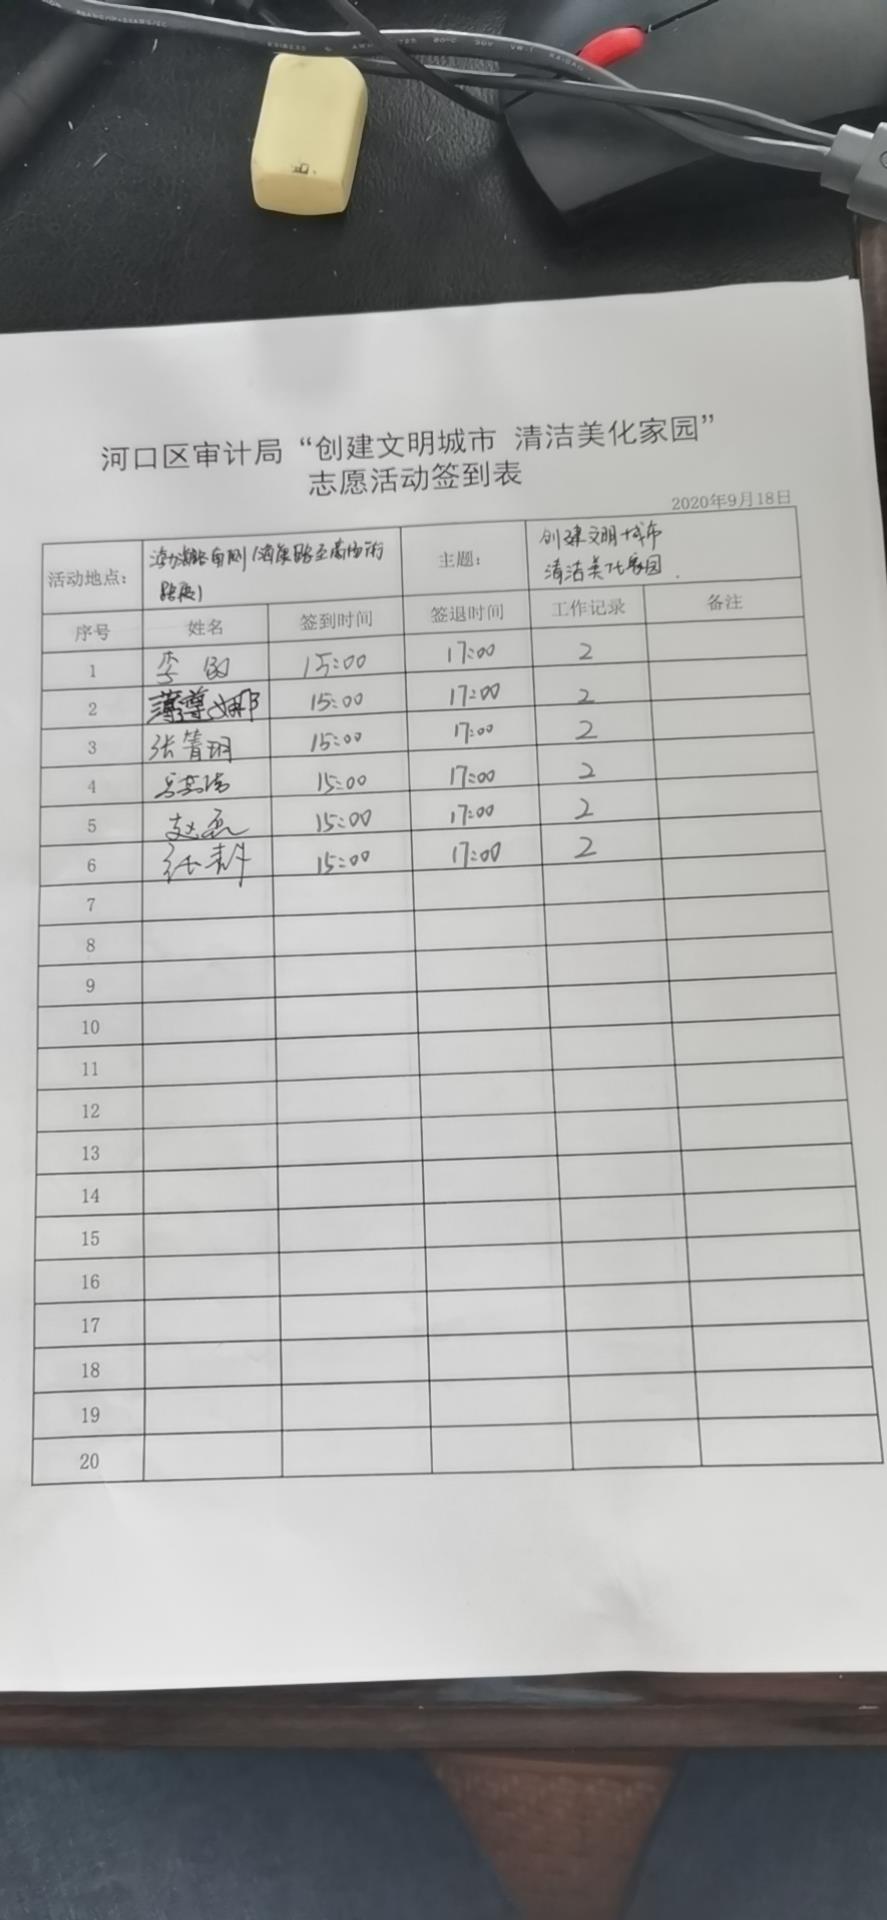 河口区审计局“创建文明城市 清洁美化家园”
志愿活动签到表
2020年9月18日
活动地点： 主题： 创建文明城市
清洁美化家园
序号 姓名 签到时间 签退时间 工作记录 备注
1 李 15:00 17:00 2
2 15:00 17:00 2
3 张菁玥 15:00 17:00 2
4 15:00 17:00 2
5 赵磊 15:00 17:00 2
6 15:00 17:00 2
7
8
9
10
11
12
13
14
15
16
17
18
19
20